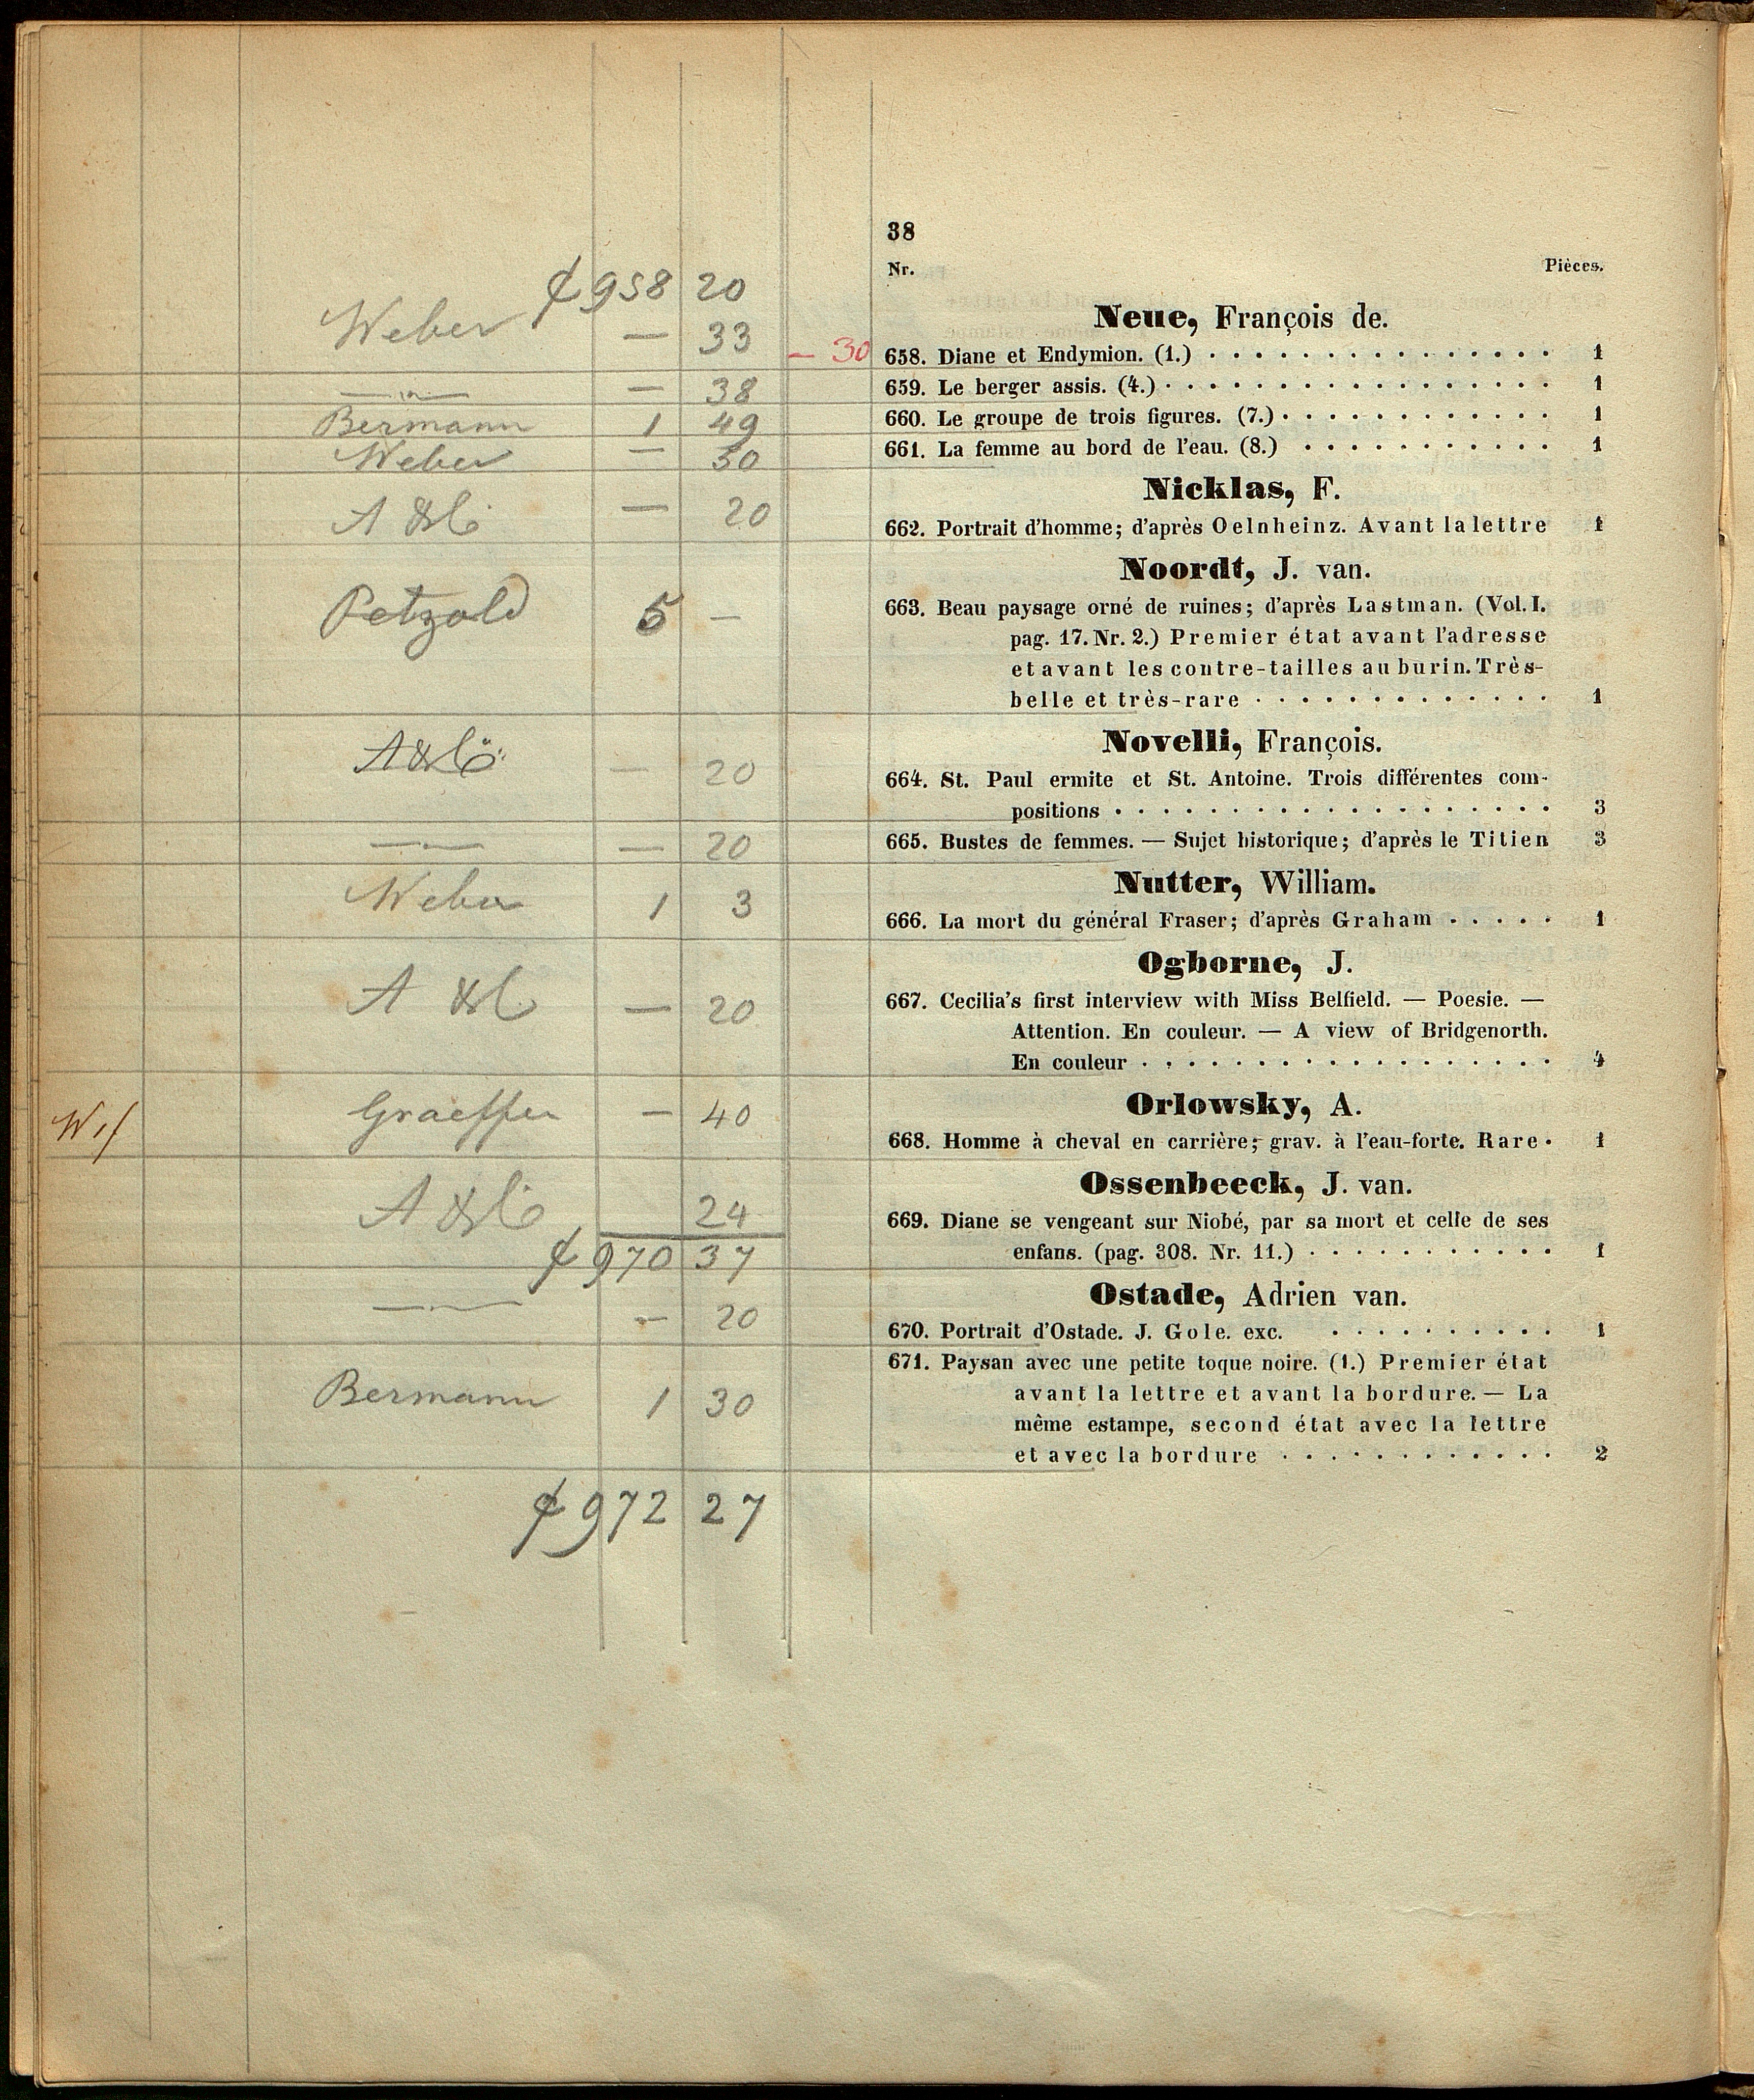 38
Nr. Pièces.
958 20
Neue, François de.
Weber — 33 — 30 658. Diane et Endymion. (1.) 1
— 38 659. Le berger assis. (4.) 1
Bermann 1 49 660. Le groupe de trois figures. (7.) 1
Weber — 30 661. La femme au bord de l'eau. (8.) 1
Nicklas, F.
— 20 662. Portrait d'homme; d'après Oelnheinz. Avant la lettre 1
Noordt, J. van.
Petzold 5 — 663. Beau paysage orné de ruines; d'après Lastman. (Vol. I.
pag. 17. Nr. 2.) Premier état avant l'adresse
et avant les contre-tailles au burin. Très-
belle et très-rare 1
Novelli, François.
— 20 664. St. Paul ermite et St. Antoine. Trois différentes com-
positions 3
— 20 665. Bustes de femmes. — Sujet historique; d'après le Titien 3
Nutter, William.
Weber 1 3 666. La mort du général Fraser; d'après Graham 1
Ogborne, J.
— 20 667. Cecilia's first interview with Miss Belfield. — Poesie. —
Attention. En couleur. — A view of Bridgenorth.
En couleur 4
Orlowsky, A.
Graeffer — 40 668. Homme à cheval en carrière; grav. à l'eau-forte. Rare 1
Ossenbeeck, J. van.
24 669. Diane se vengeant sur Niobé, par sa mort et celle de ses
970 37 enfans. (pag. 308. Nr. 11.) 1
Ostade, Adrien van.
— 20 670. Portrait d'Ostade. J. Gole. exc. 1
671. Paysan avec une petite toque noire. (1.) Premier état
Bermann 1 30 avant la lettre et avant la bordure. — La
même estampe, second état avec la lettre
et avec la bordure 2
972 27